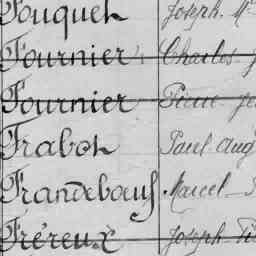 Fouquet Joseph. M
Fournier Charles
Fournier Pierre
Frabot Paul Aug
Frandeboeuf Marcel
Fréreux Joseph